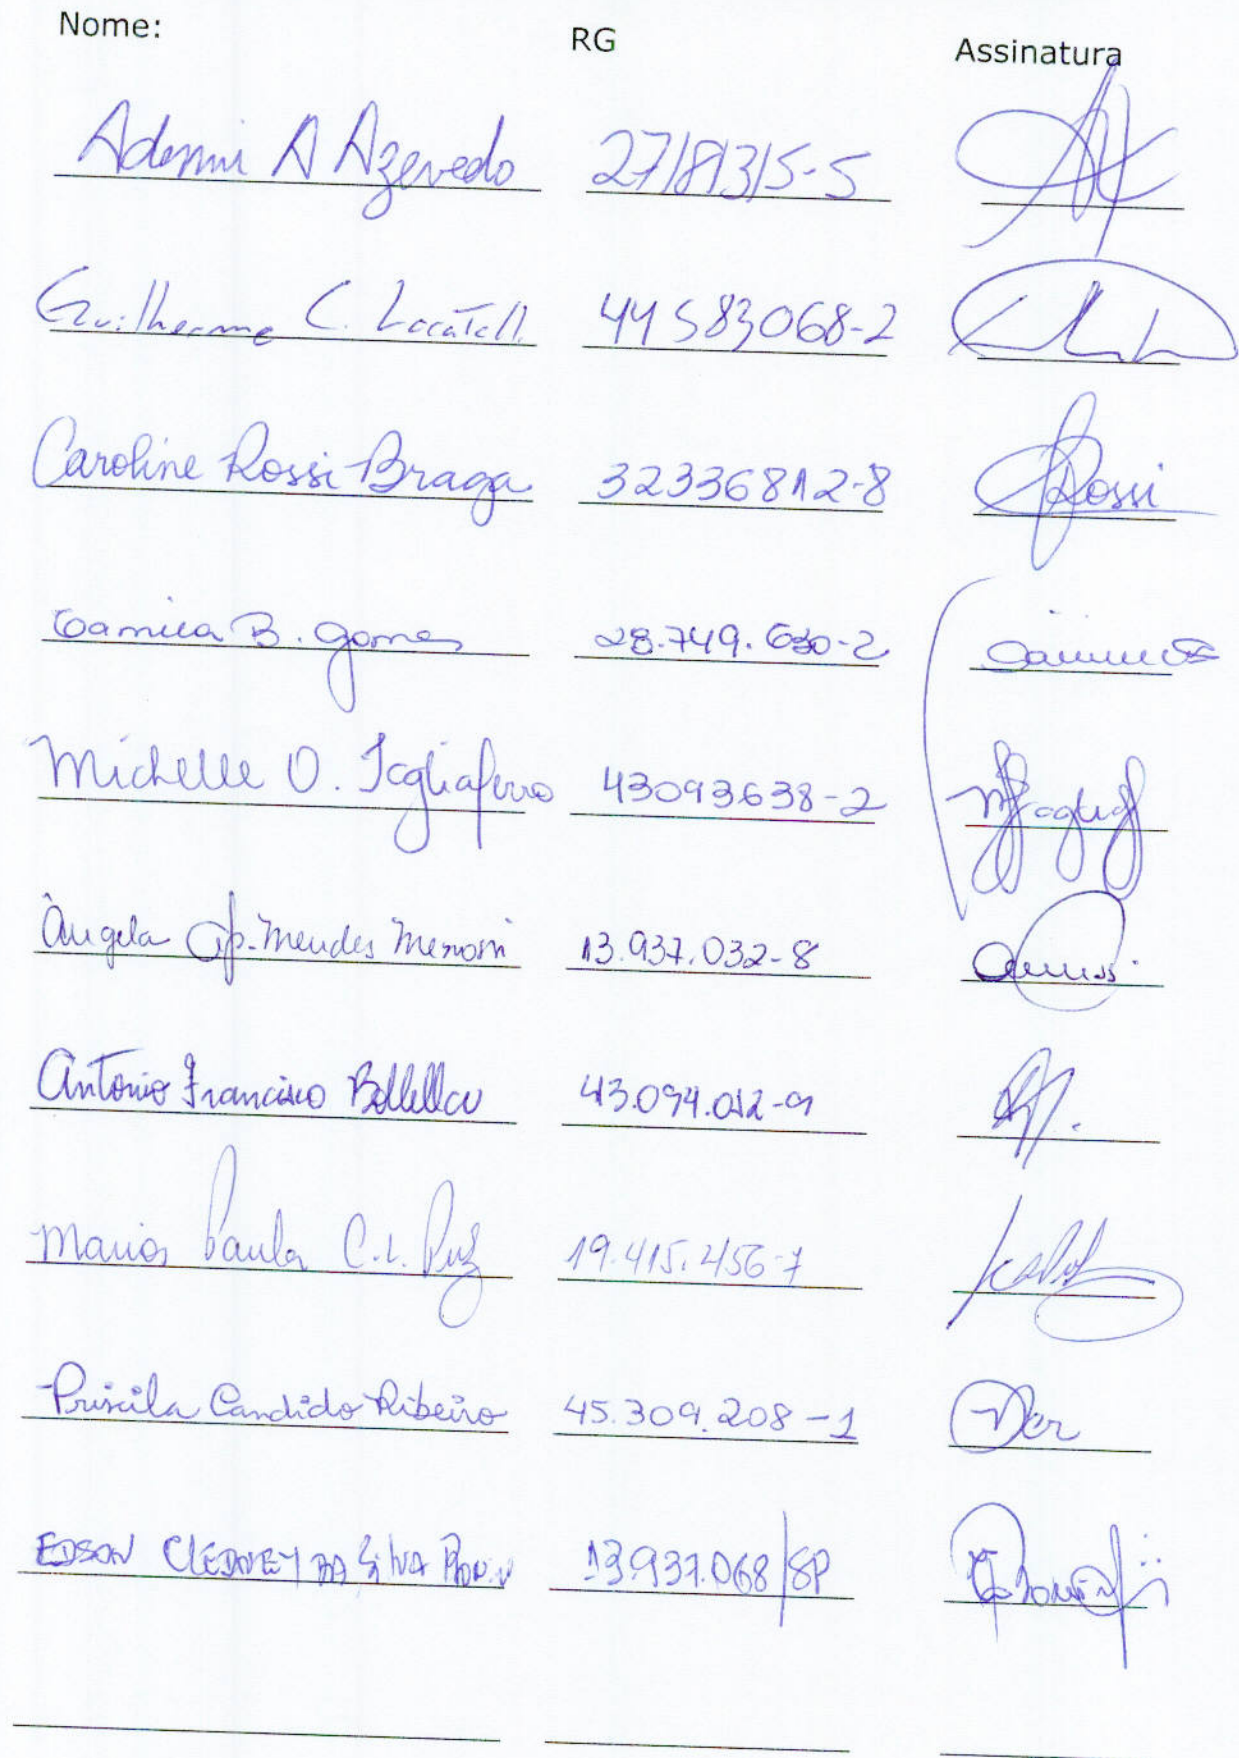 Nome: RG Assinatura
Ademir A Azevedo 27181315-5
Guilherme C. Locatelli 44583068-2
Caroline Rossi Braga 32336812-8 Rossi
Camila B. Gomes 28.749.630-2
Michelle O. Tagliaferro 43093638-2
Ângela Ap. Mendes 13.937.032-8
Antonio Francisco 43.094.012-9
Maria Paula C.L. 19.415.456-7
Priscila Candido Ribeiro 45.309.208-1
EDSON DA SILVA 13937.068/SP